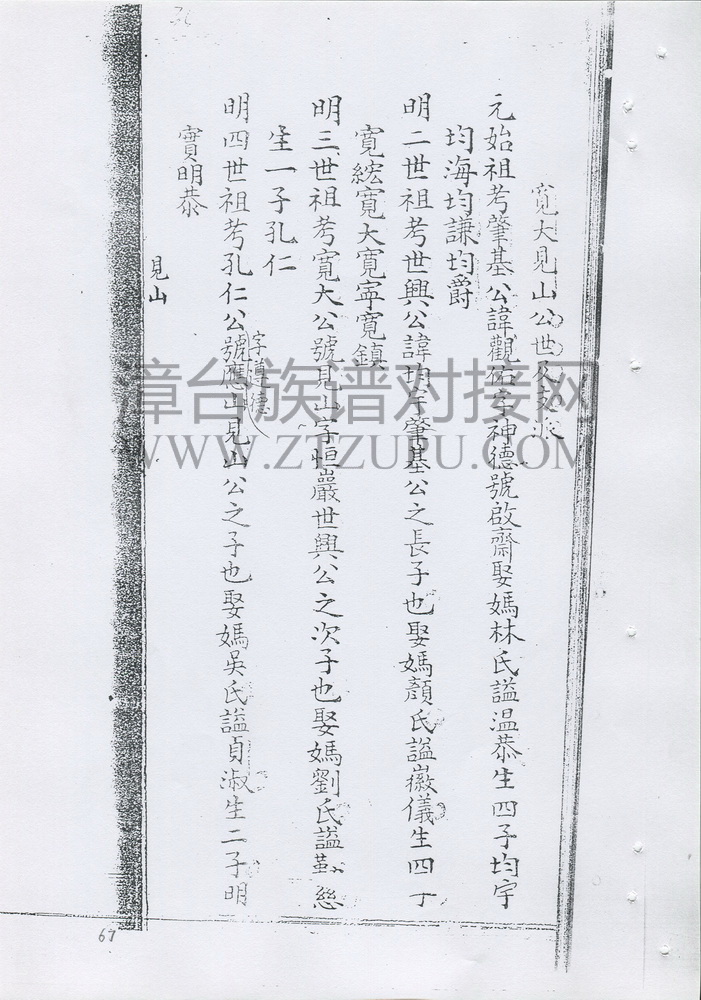 寬大見山公世及支派
元始祖考肇基公諱觀佑字神德號啟齋娶媽林氏謚温恭生四子均宇
均海均謙均爵
明二世祖考世興公諱均宇肇基公之長子也娶媽顏氏謚徽儀生四丁
寬綋寬大寬寧寬鎮
明三世祖考寬大公號見山字恒巖世興公之次子也娶媽劉氏謚勤慈
生一子孔仁
明四世祖考孔仁公號應山見山公之子也娶媽吳氏謚貞淑生二子明
字遵德
實明恭
見山
67
漳台族谱对接网
WWW.ZTZUPU.COM